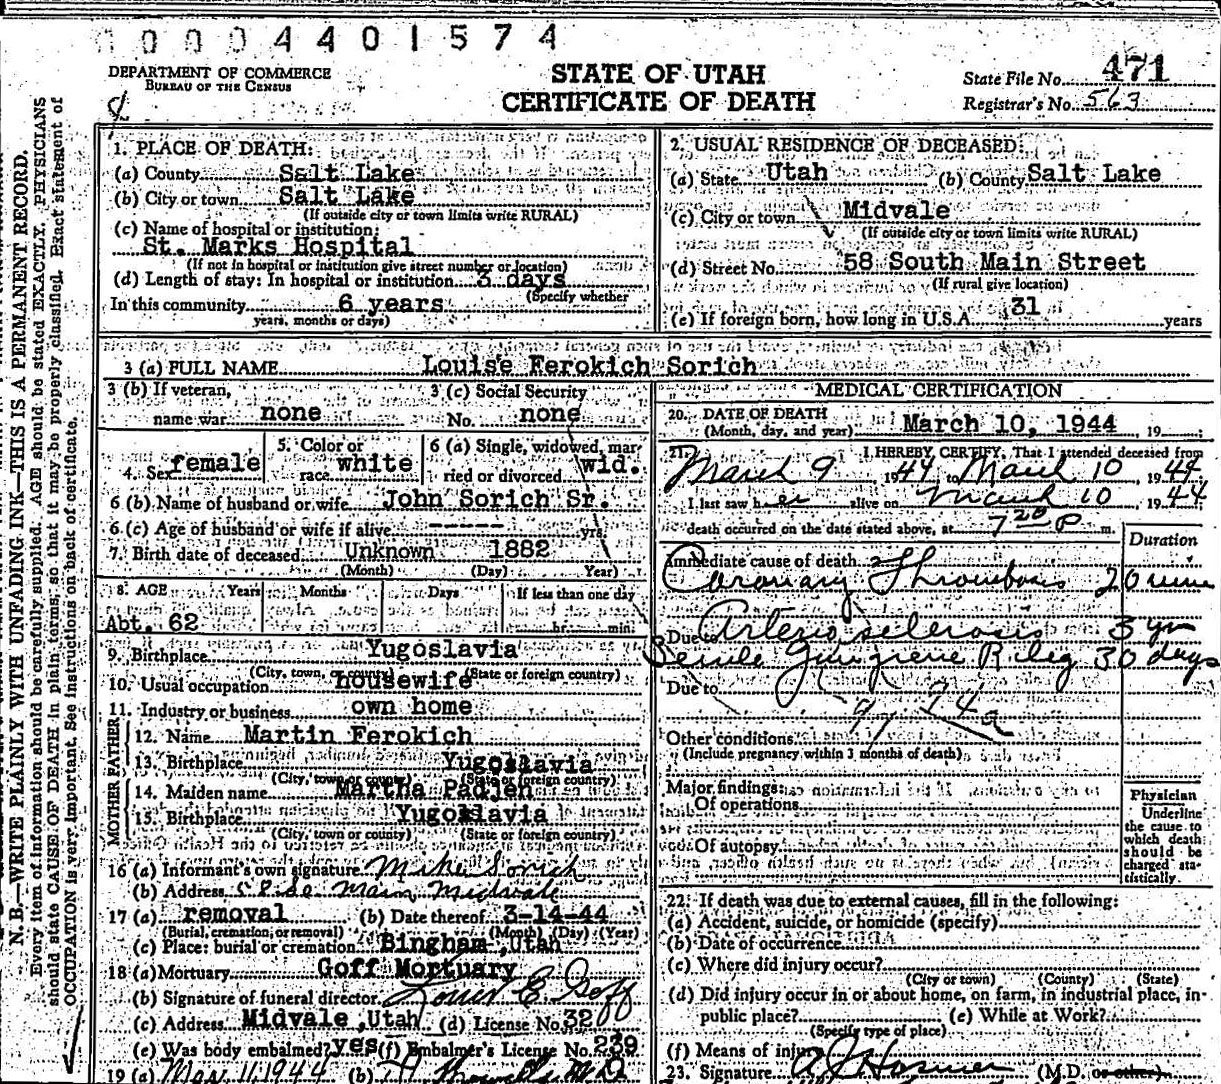 0004401574
DEPARTMENT OF COMMERCE
BUREAU OF THE CENSUS
STATE OF UTAH
CERTIFICATE OF DEATH
State File No. 471
Registrar's No. 563
N. B.—WRITE PLAINLY WITH UNFADING INK—THIS IS A PERMANENT RECORD.
Every item of information should be carefully supplied. AGE should be stated EXACTLY. PHYSICIANS
should state CAUSE OF DEATH in plain terms, so that it may be properly classified. Exact statement of
OCCUPATION is very important. See instructions on back of certificate.
1. PLACE OF DEATH:
(a) County Salt Lake
(b) City or town Salt Lake
(If outside city or town limits write RURAL)
(c) Name of hospital or institution:
St. Marks Hospital
(If not in hospital or institution give street number or location)
(d) Length of stay: In hospital or institution 3 days
(Specify whether
In this community 6 years
years, months or days)
2. USUAL RESIDENCE OF DECEASED:
(a) State Utah (b) County Salt Lake
(c) City or town Midvale
(If outside city or town limits write RURAL)
(d) Street No. 58 South Main Street
(If rural give location)
(e) If foreign born, how long in U.S.A. 31 years
3 (a) FULL NAME Louise Ferokich Sorich
3 (b) If veteran,
name war none
3 (c) Social Security
No. none
4. Sex female
5. Color or
race white
6 (a) Single, widowed, mar
ried or divorced wid.
6 (b) Name of husband or wife John Sorich Sr.
6 (c) Age of husband or wife if alive ----- yrs.
7. Birth date of deceased Unknown 1882
(Month) (Day) Year)
8. AGE Years Months Days If less than one day
Abt. 62 hr. min.
9. Birthplace Yugoslavia
(City, town, or county) (State or foreign country)
10. Usual occupation housewife
11. Industry or business own home
FATHER
12. Name Martin Ferokich
13. Birthplace Yugoslavia
(City, town or county) (State or foreign country)
MOTHER
14. Maiden name Martha Padjen
15. Birthplace Yugoslavia
(City, town or county) (State or foreign country)
16 (a) Informant's own signature Mike Sorich
(b) Address 58 So Main Midvale
17 (a) removal (b) Date thereof 3-14-44
(Burial, cremation, or removal) (Month) (Day) (Year)
(c) Place: burial or cremation Bingham, Utah
18 (a) Mortuary Goff Mortuary
(b) Signature of funeral director Louis E. Goff
(c) Address Midvale, Utah (d) License No. 32
(e) Was body embalmed? yes (f) Embalmer's License No. 239
19 (a) Mar. 11, 1944 (b) M D
MEDICAL CERTIFICATION
20. DATE OF DEATH
(Month, day, and year) March 10, 1944, 19
21. I HEREBY CERTIFY, That I attended deceased from
March 9 1944 to March 10, 1944
I last saw her alive on March 10, 1944
death occurred on the date stated above, at 7 20 P m.
Duration
Immediate cause of death
Coronary Thrombosis 20 min
Due to Arteriosclerosis 3 yrs
Senile Gangrene R leg 30 days
Due to
97 94a
Other conditions
(Include pregnancy within 3 months of death)
Major findings:
Of operations
Of autopsy
Physician
Underline
the cause to
which death
should be
charged sta-
tistically.
22. If death was due to external causes, fill in the following:
(a) Accident, suicide, or homicide (specify)
(b) Date of occurrence
(c) Where did injury occur?
(City or town) (County) (State)
(d) Did injury occur in or about home, on farm, in industrial place, in-
public place? (e) While at Work?
(Specify type of place)
(f) Means of injury
23. Signature (M.D. or other)